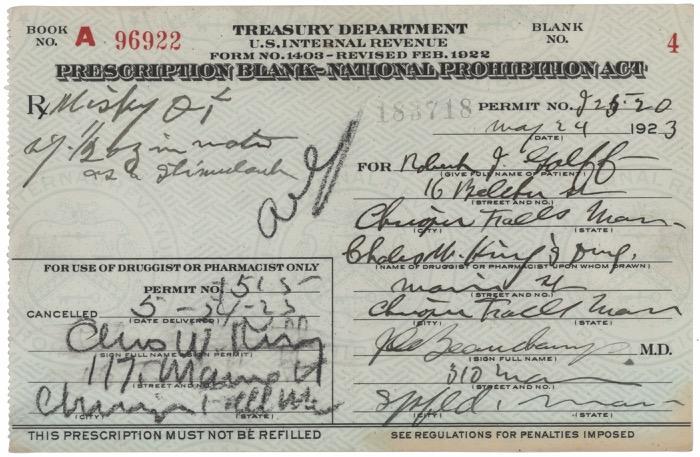 BOOK NO. A 96922
TREASURY DEPARTMENT
U.S. INTERNAL REVENUE
FORM NO. 1403-REVISED FEB. 1922
BLANK NO. 4
PRESCRIPTION BLANK-NATIONAL PROHIBITION ACT
Rx Wisky Qt
183718
PERMIT NO.
Sig 1/2 oz in water
as a stimulant
May 24 1923
(DATE)
FOR Robert J.
(GIVE FULL NAME OF PATIENT)
16 Belcher St
(STREET AND NO.)
Falls Mass
(CITY) (STATE)
Chas W. King
(NAME OF DRUGGIST OR PHARMACIST UPON WHOM DRAWN)
Main St
(STREET AND NO.)
Falls Mass
(CITY) (STATE)
Beauchamp M.D.
(SIGN FULL NAME)
310 Main
(STREET AND NO.)
Spfld. Mass
(CITY) (STATE)
FOR USE OF DRUGGIST OR PHARMACIST ONLY
PERMIT NO. 1515
CANCELLED 5-24-23
(DATE DELIVERED)
Chas W. King
(SIGN FULL NAME PERMIT)
117 Main St
(STREET AND NO.)
(CITY) (STATE)
THIS PRESCRIPTION MUST NOT BE REFILLED
SEE REGULATIONS FOR PENALTIES IMPOSED